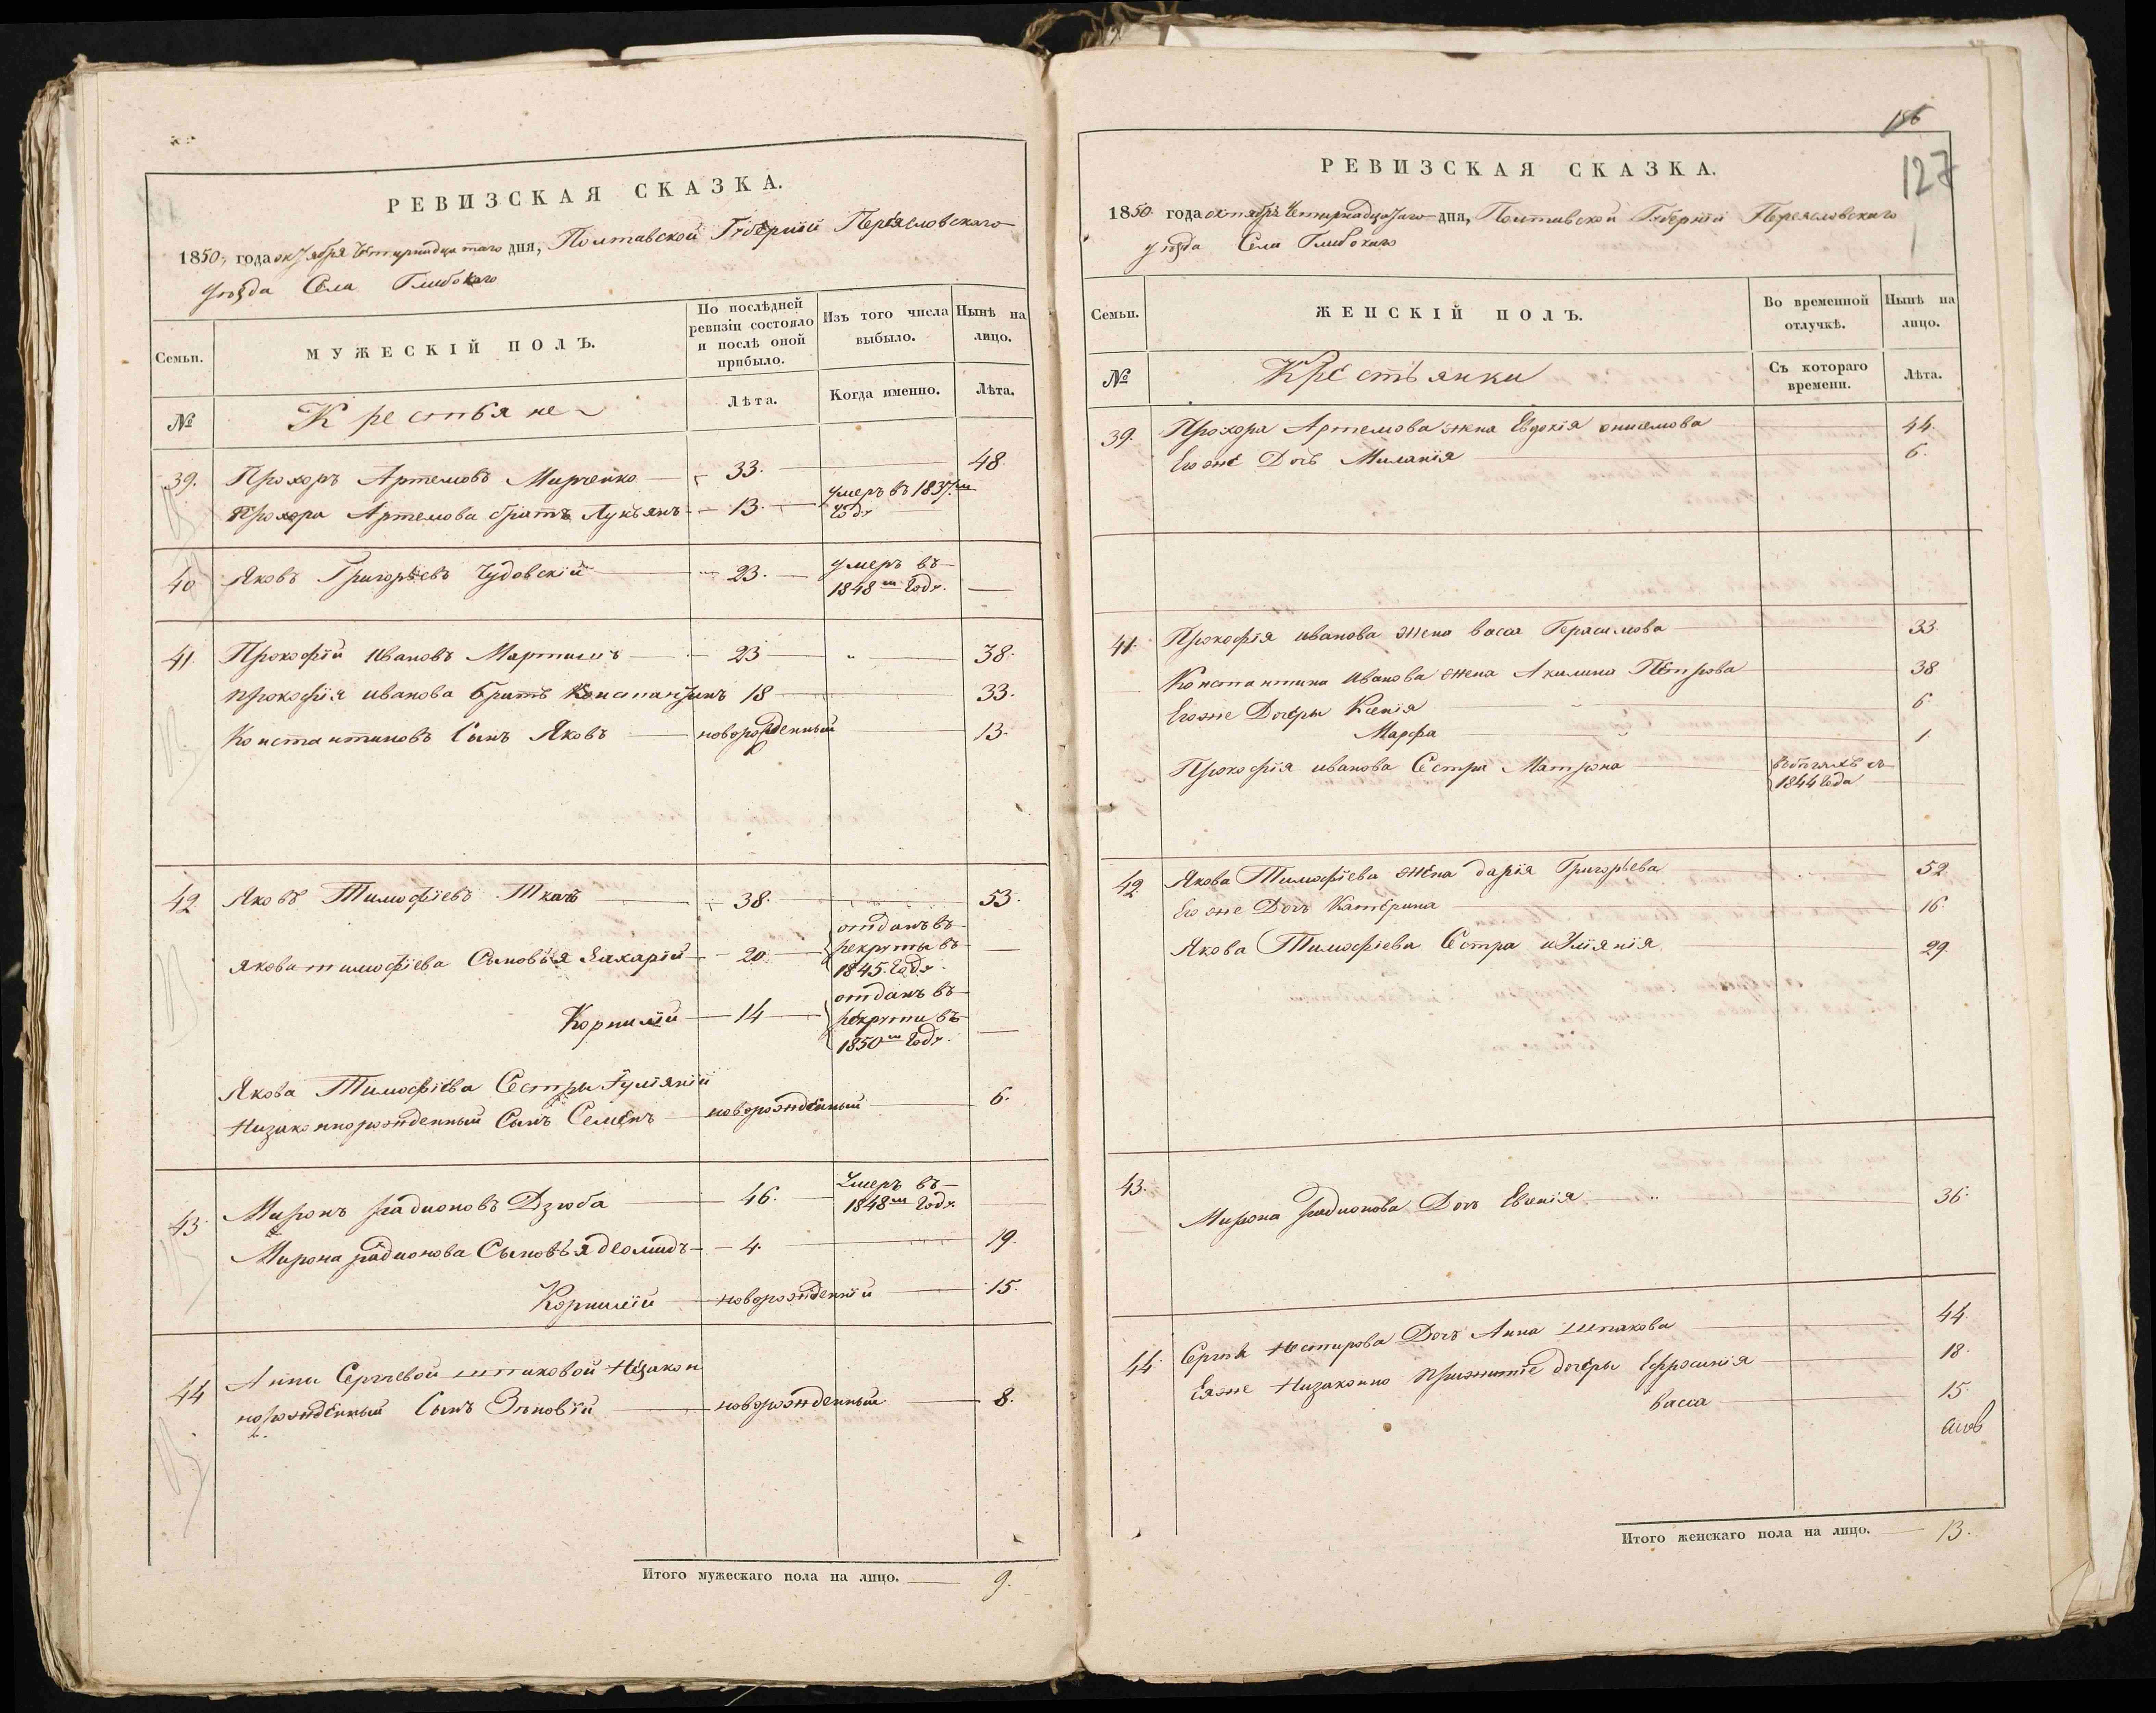 РЕВИЗСКАЯ СКАЗКА.
1850, года октября Четырнадцатаго дня, Полтавской Губерніи Переясловскаго
уѣзда Села Глибокаго
Семьи.
МУЖЕСКІЙ ПОЛЪ.
По послѣдней ревизіи состояло и послѣ оной прибыло.
Изъ того числа выбыло.
Нынѣ на лицо.
№
Крестьяне
Лѣта.
Когда именно.
Лѣта.
39. Прохоръ Артемовъ Мирченко 33. 48.
Прохора Артемова братъ Лукьянъ 13. умеръ въ 1837м
году
40 Яковъ Григорьевъ Чудовскій 23. умеръ въ
1848м году.
41 Прокофій Ивановъ Мартишъ 23 38.
Прокофія иванова братъ Константинъ 18 33.
Константиновъ Сынъ Яковъ новорожденный 13.
42 Яковъ Тимофіевъ Ткачъ 38. 53.
Якова тимофіева Сыновья Захарій 20 отданъ въ
рекруты въ
1845. году.
Корнилій 14 отданъ въ
рекруты въ
1850м году.
Якова Тимофіева Сестры Іуліяніи
Низаконнорожденный Сынъ Семенъ новорожденный 6.
43. Миронъ радионовъ Дзюба 46. Умеръ въ
1848м году.
Мирона радионова Сыновья деомидъ 4. 19.
Корнилій новорожденній 15.
44 Анны Сергѣевой шпаковой Незакон
норожденный Сынъ Зѣновій новорожденный 8.
Итого мужескаго пола на лицо. 9.
186
127
РЕВИЗСКАЯ СКАЗКА.
1850 года октября Четырнадцатаго дня, Полтавской Губерніи Переясловскаго
уѣзда Села Глибокаго
Семьи.
ЖЕНСКІЙ ПОЛЪ.
Во временной отлучкѣ.
Нынѣ на лицо.
№
Крестьянки
Съ котораго времени.
Лѣта.
39. Прохора Артемова жена Евдокія онисимова 44.
Его же Дочь Миланія 6.
41. Прокофія иванова жена васса Герасимова 33.
Константина Иванова жена Акилина Петрова 38
Егоже Дочеры Ксенія 6.
Марфа 1
Прокофія иванова Сестра Матрона въ бѣгахъ съ
1844 года
42. Якова Тимофіева жена дарія Григорьева 52
Его же Дочь Катерина 16.
Якова Тимофіева Сестра иУліянія 29.
43. Мирона радионова Дочь Евгенія 36.
44. Сергѣя Нестирова Дочь Анна шпакова 44.
Еяже Низаконно прижитіе дочеры Ефросинія 18.
васса 15.
Итого женскаго пола на лицо. 13.